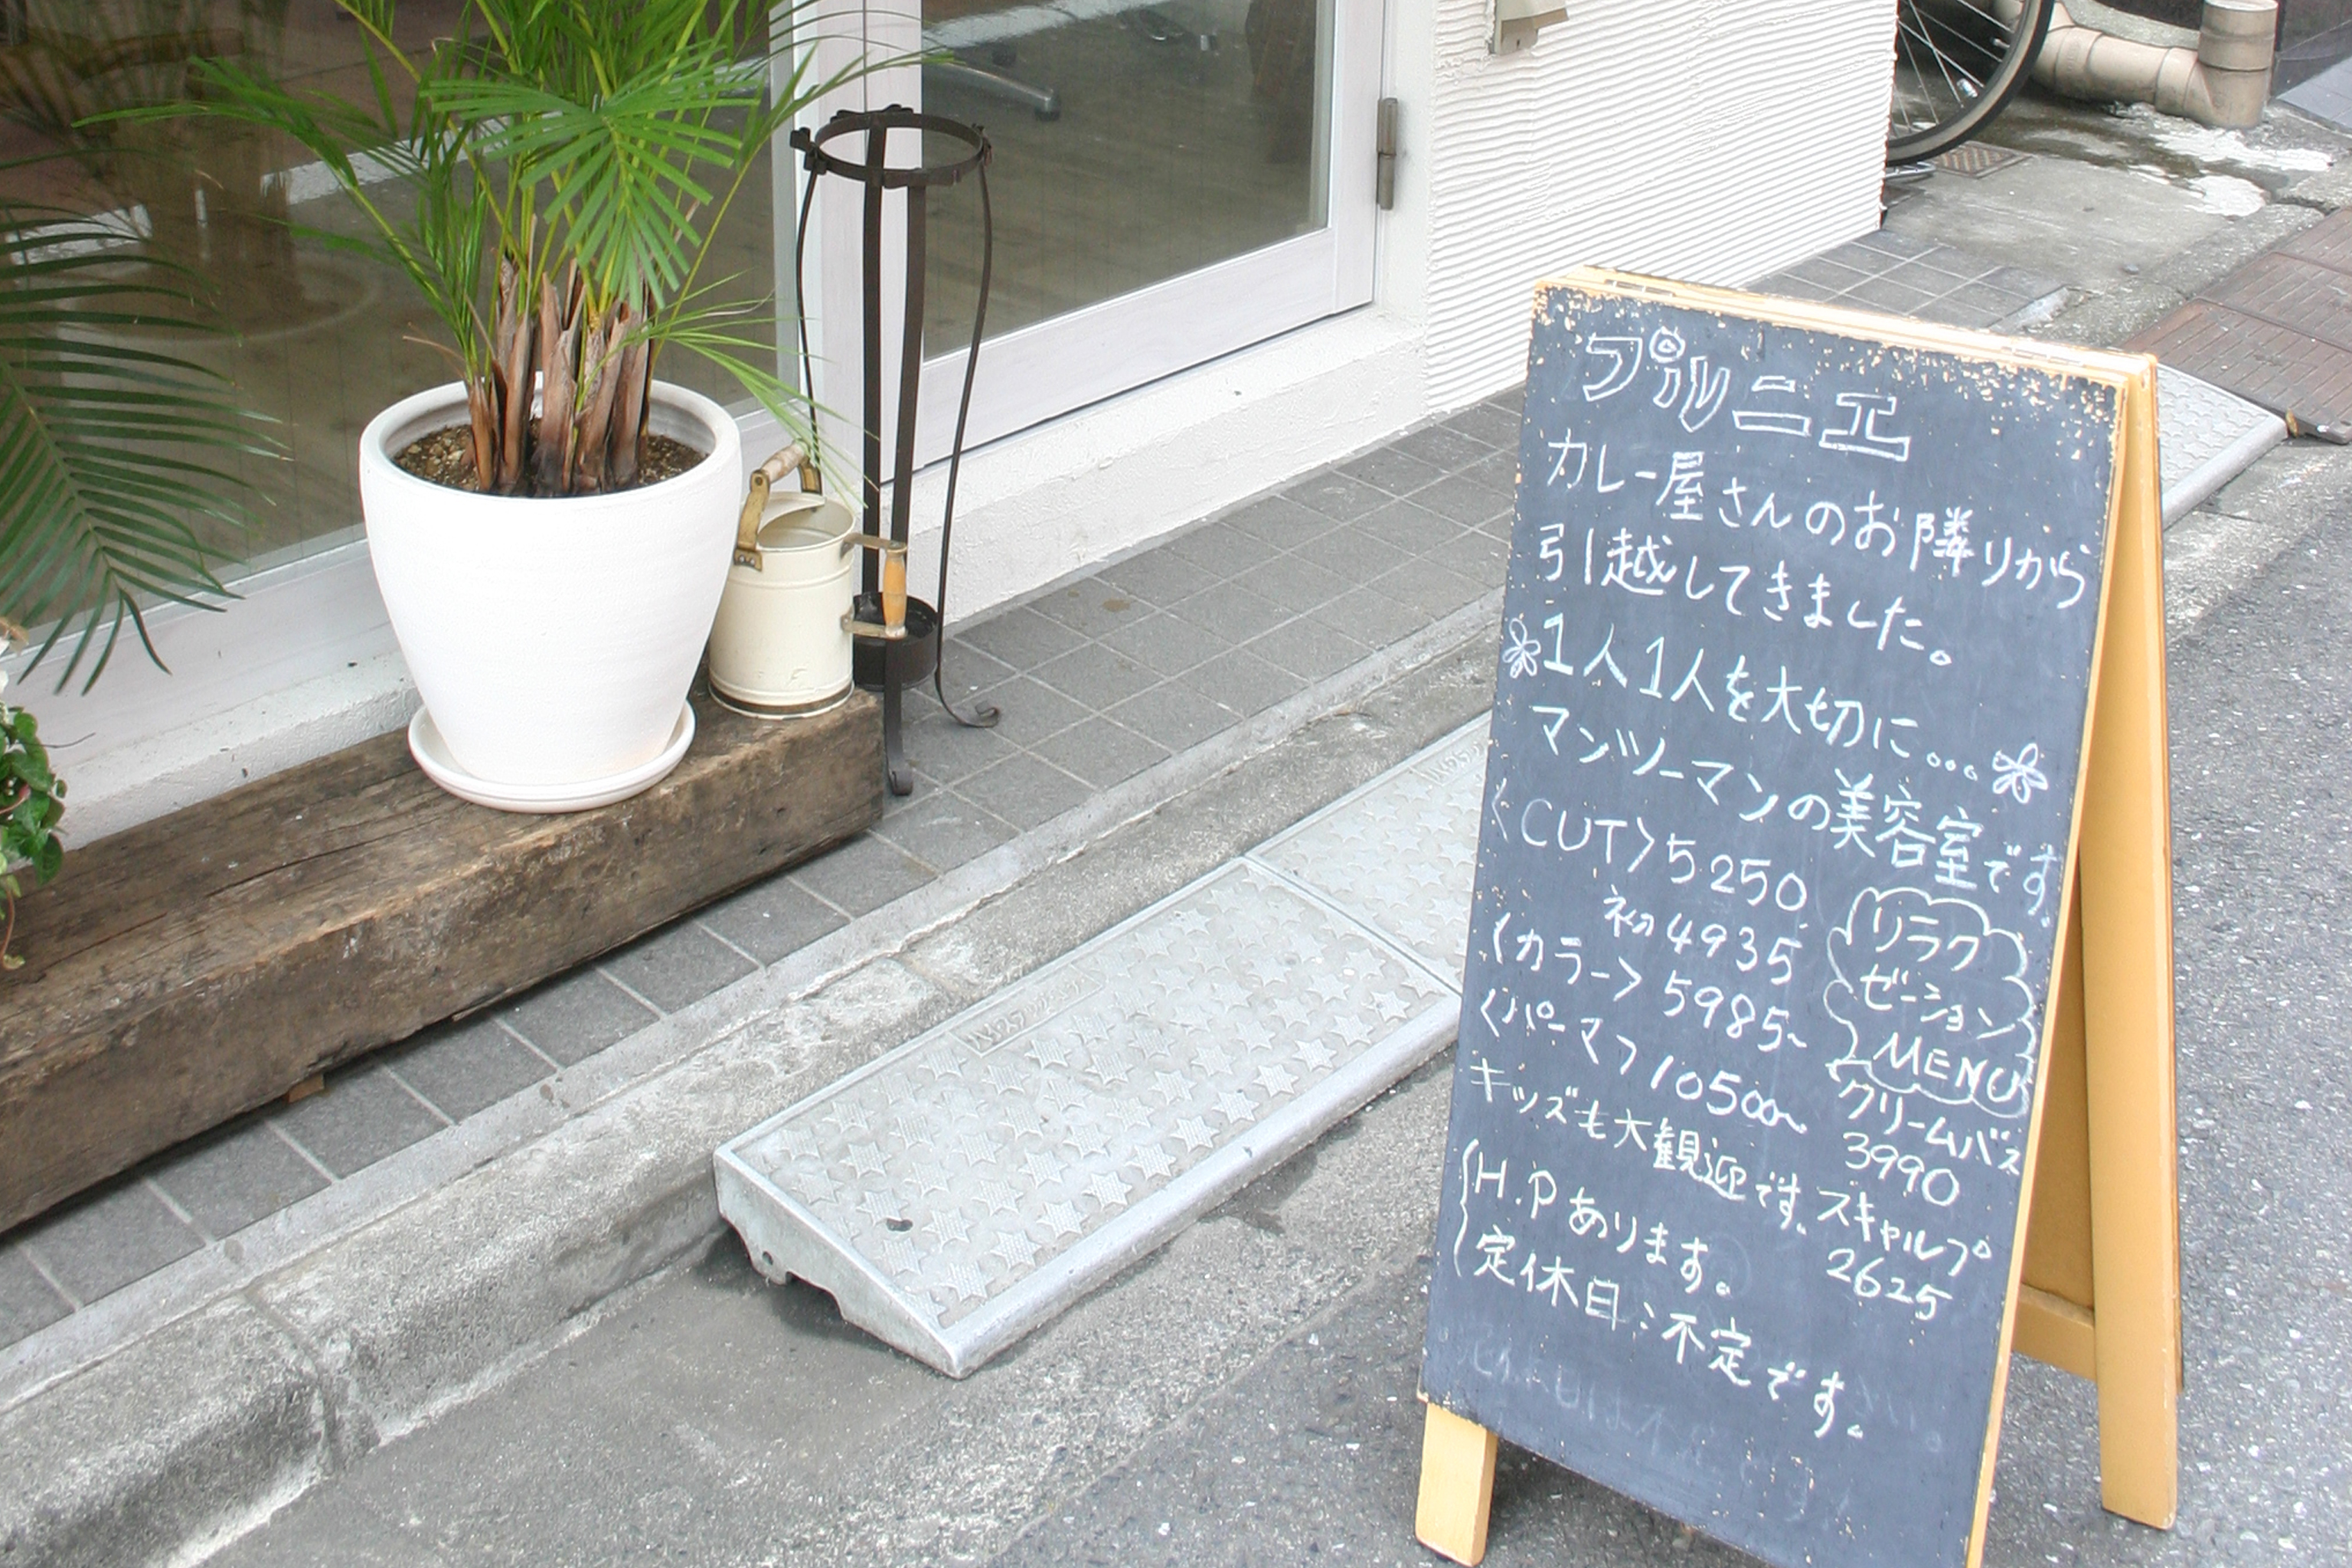 プルニエ
カレー屋さんのお隣りから
引越してきました。
1人1人を大切に...
マンツーマンの美容室です。
〈CUT〉5250
初4935
〈カラー〉5985~
〈パーマ〉10500~
キッズも大観迎です。
H.Pあります。
定休日:不定です。
リラク
ゼーション
MENU
クリームバス
3990
スキャルプ
2625